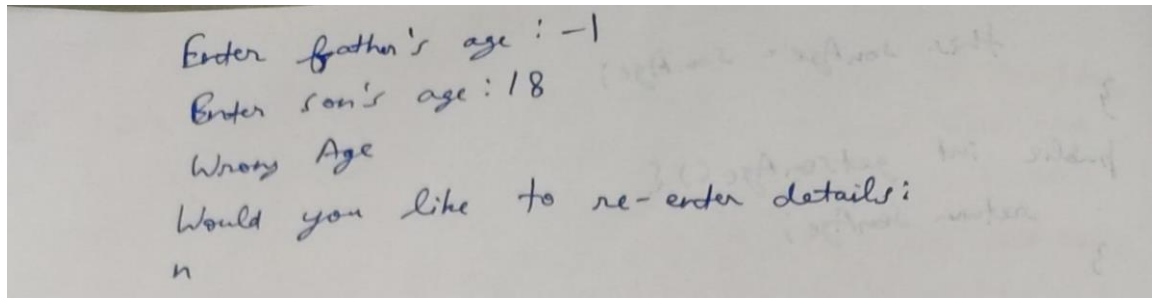 Enter father's age : -1
Enter son's age : 18
Wrong Age
Would you like to re-enter details:
n